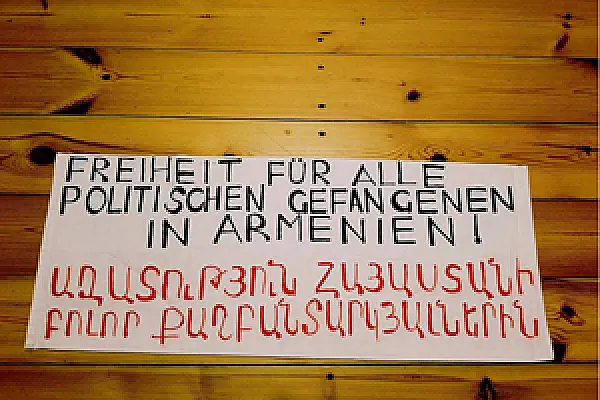 FREIHEIT FÜR ALLE
POLITISCHEN GEFANGENEN
IN ARMENIEN!
ԱԶԱՏՈւԹՅՈւՆ ՀԱՅԱՍՏԱՆԻ
ԲՈԼՈՐ ՔԱՂԲԱՆՏԱՐԿՅԱԼՆԵՐԻՆ